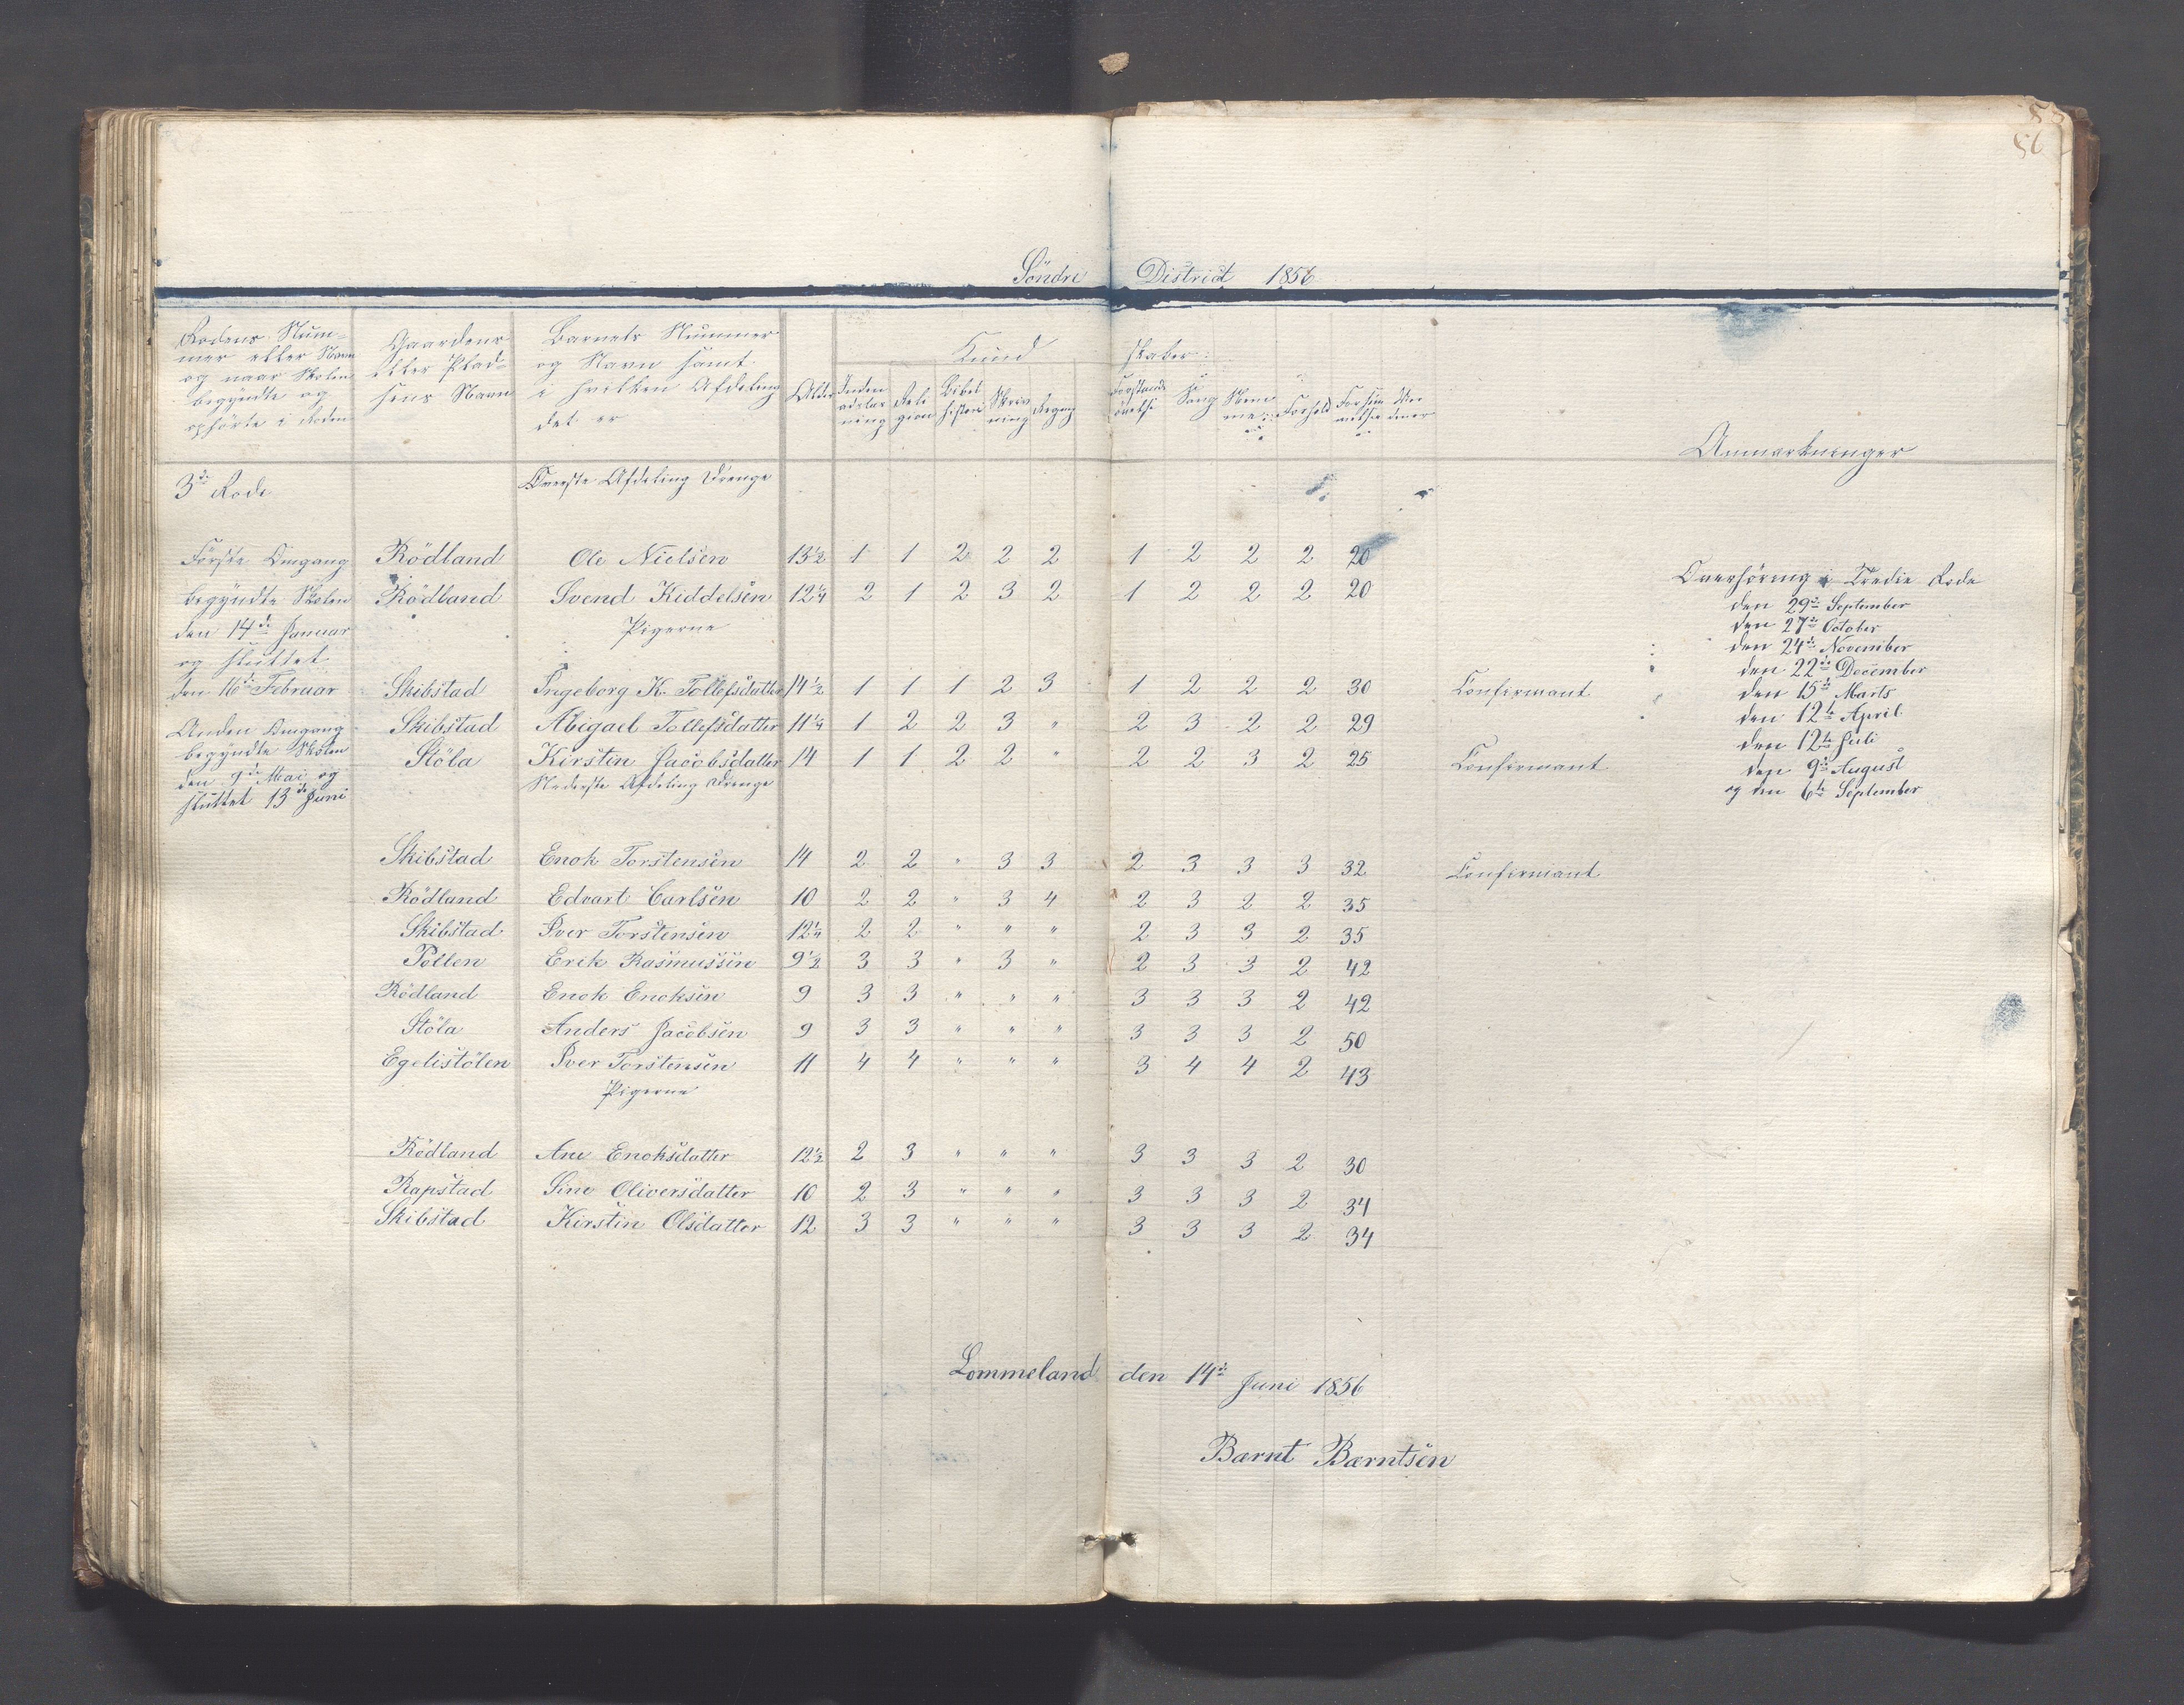 56
Söndre District 1856
Rodens Num-
mer eller Navn
og naar Skolen
begyndte og
ophörte i Roden
Gaardens
eller Plad-
sens Navn
Barnets Nummer
og Navn samt
i hvilken Afdeling
det er
Alder
Kund skaber
Inden
adslæs
ning
Reli
gion
Bibel
histori
Skriv
ning
Regng
Forstands
övelse
Sang
Nem
me
Forhold
Forsöm
melser
Anmærkninger
3die Rode
Överste Afdeling Drenge
Förste Omgang
begyndte Skolen
den 14de Januar
og sluttet
den 16de Februar
Anden Omgang
begyndte Skolen
den 9de Mai og
sluttet 13de Juni
Rödland Ole Nielsen 13½ 1 1 2 2 2 1 2 2 2 20
Rödland Svend Kiddelsen 12¼ 2 1 2 3 2 1 2 2 2 20
Pigerne
Skibstad Ingeborg K. Tollefsdatter 14½ 1 1 1 2 3 1 2 2 2 30 Confirmant
Skibstad Abigael Tollefsdatter 11¼ 1 2 2 3 " 2 3 2 2 29
Stöla Kirstin Jacobsdatter 14 1 1 2 2 " 2 2 3 2 25 Confirmant
Nederste Afdeling Drenge
Skibstad Enok Torstensen 14 2 2 " 3 3 2 3 3 3 32 Confirmant
Rödland Edvart Carlsen 10 2 2 " 3 4 2 3 2 2 35
Skibstad Iver Torstensen 12¼ 2 2 " " " 2 3 3 2 35
Pollen Erik Rasmussen 9½ 3 3 " 3 " 2 3 3 2 42
Rödland Enok Enoksen 9 3 3 " " " 3 3 3 2 42
Stöla Anders Jacobsen 9 3 3 " " " 3 3 3 2 50
Egelistölen Iver Torstensen 11 4 4 " " " 3 4 4 2 43
Pigerne
Rödland Ane Enoksdatter 12½ 2 3 " " " 3 3 3 2 30
Rapstad Sine Oliversdatter 10 2 3 " " " 3 3 3 2 34
Skibstad Kirstin Olsdatter 12 3 3 " " " 3 3 3 2 34
Overhöring i Tredie Rode
den 29de September
den 27de October
den 24de November
den 22de December
den 15de Marts
den 12te April
den 12te Juli
den 9de August
og den 6te September
Lommeland den 14de Juni 1856
Bærnt Bærntsen